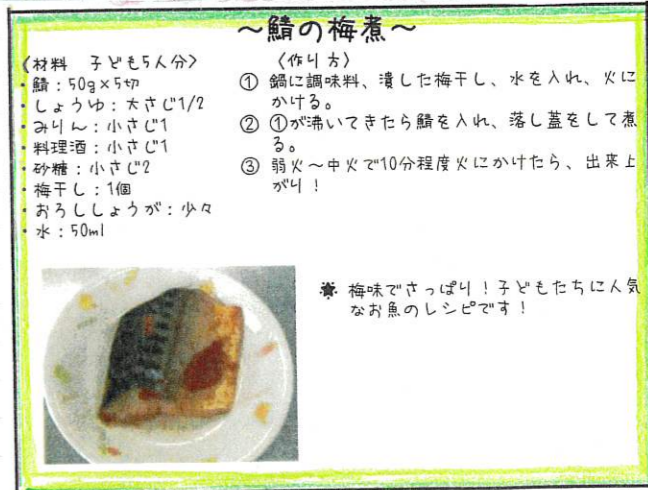 ～鯖の梅煮～
〈材料　子ども5人分〉
・鯖：50g×5切
・しょうゆ：大さじ1/2
・みりん：小さじ1
・料理酒：小さじ1
・砂糖：小さじ2
・梅干し：1個
・おろししょうが：少々
・水：50ml
〈作り方〉
① 鍋に調味料、潰した梅干し、水を入れ、火に
かける。
② ①が沸いてきたら鯖を入れ、落し蓋をして煮
る。
③ 弱火～中火で10分程度火にかけたら、出来上
がり！
梅味でさっぱり！子どもたちに人気
なお魚のレシピです！